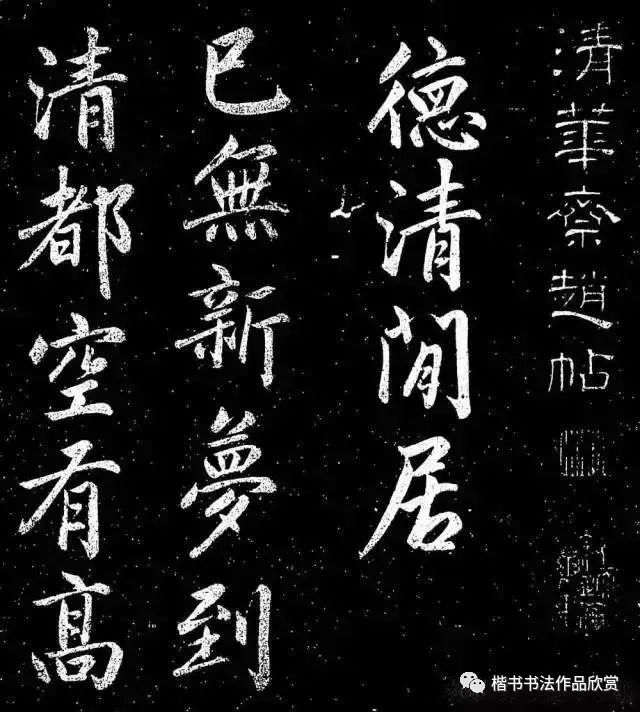 清華齋趙帖
德清閒居
已無新夢到
清都空有高
楷书书法作品欣赏